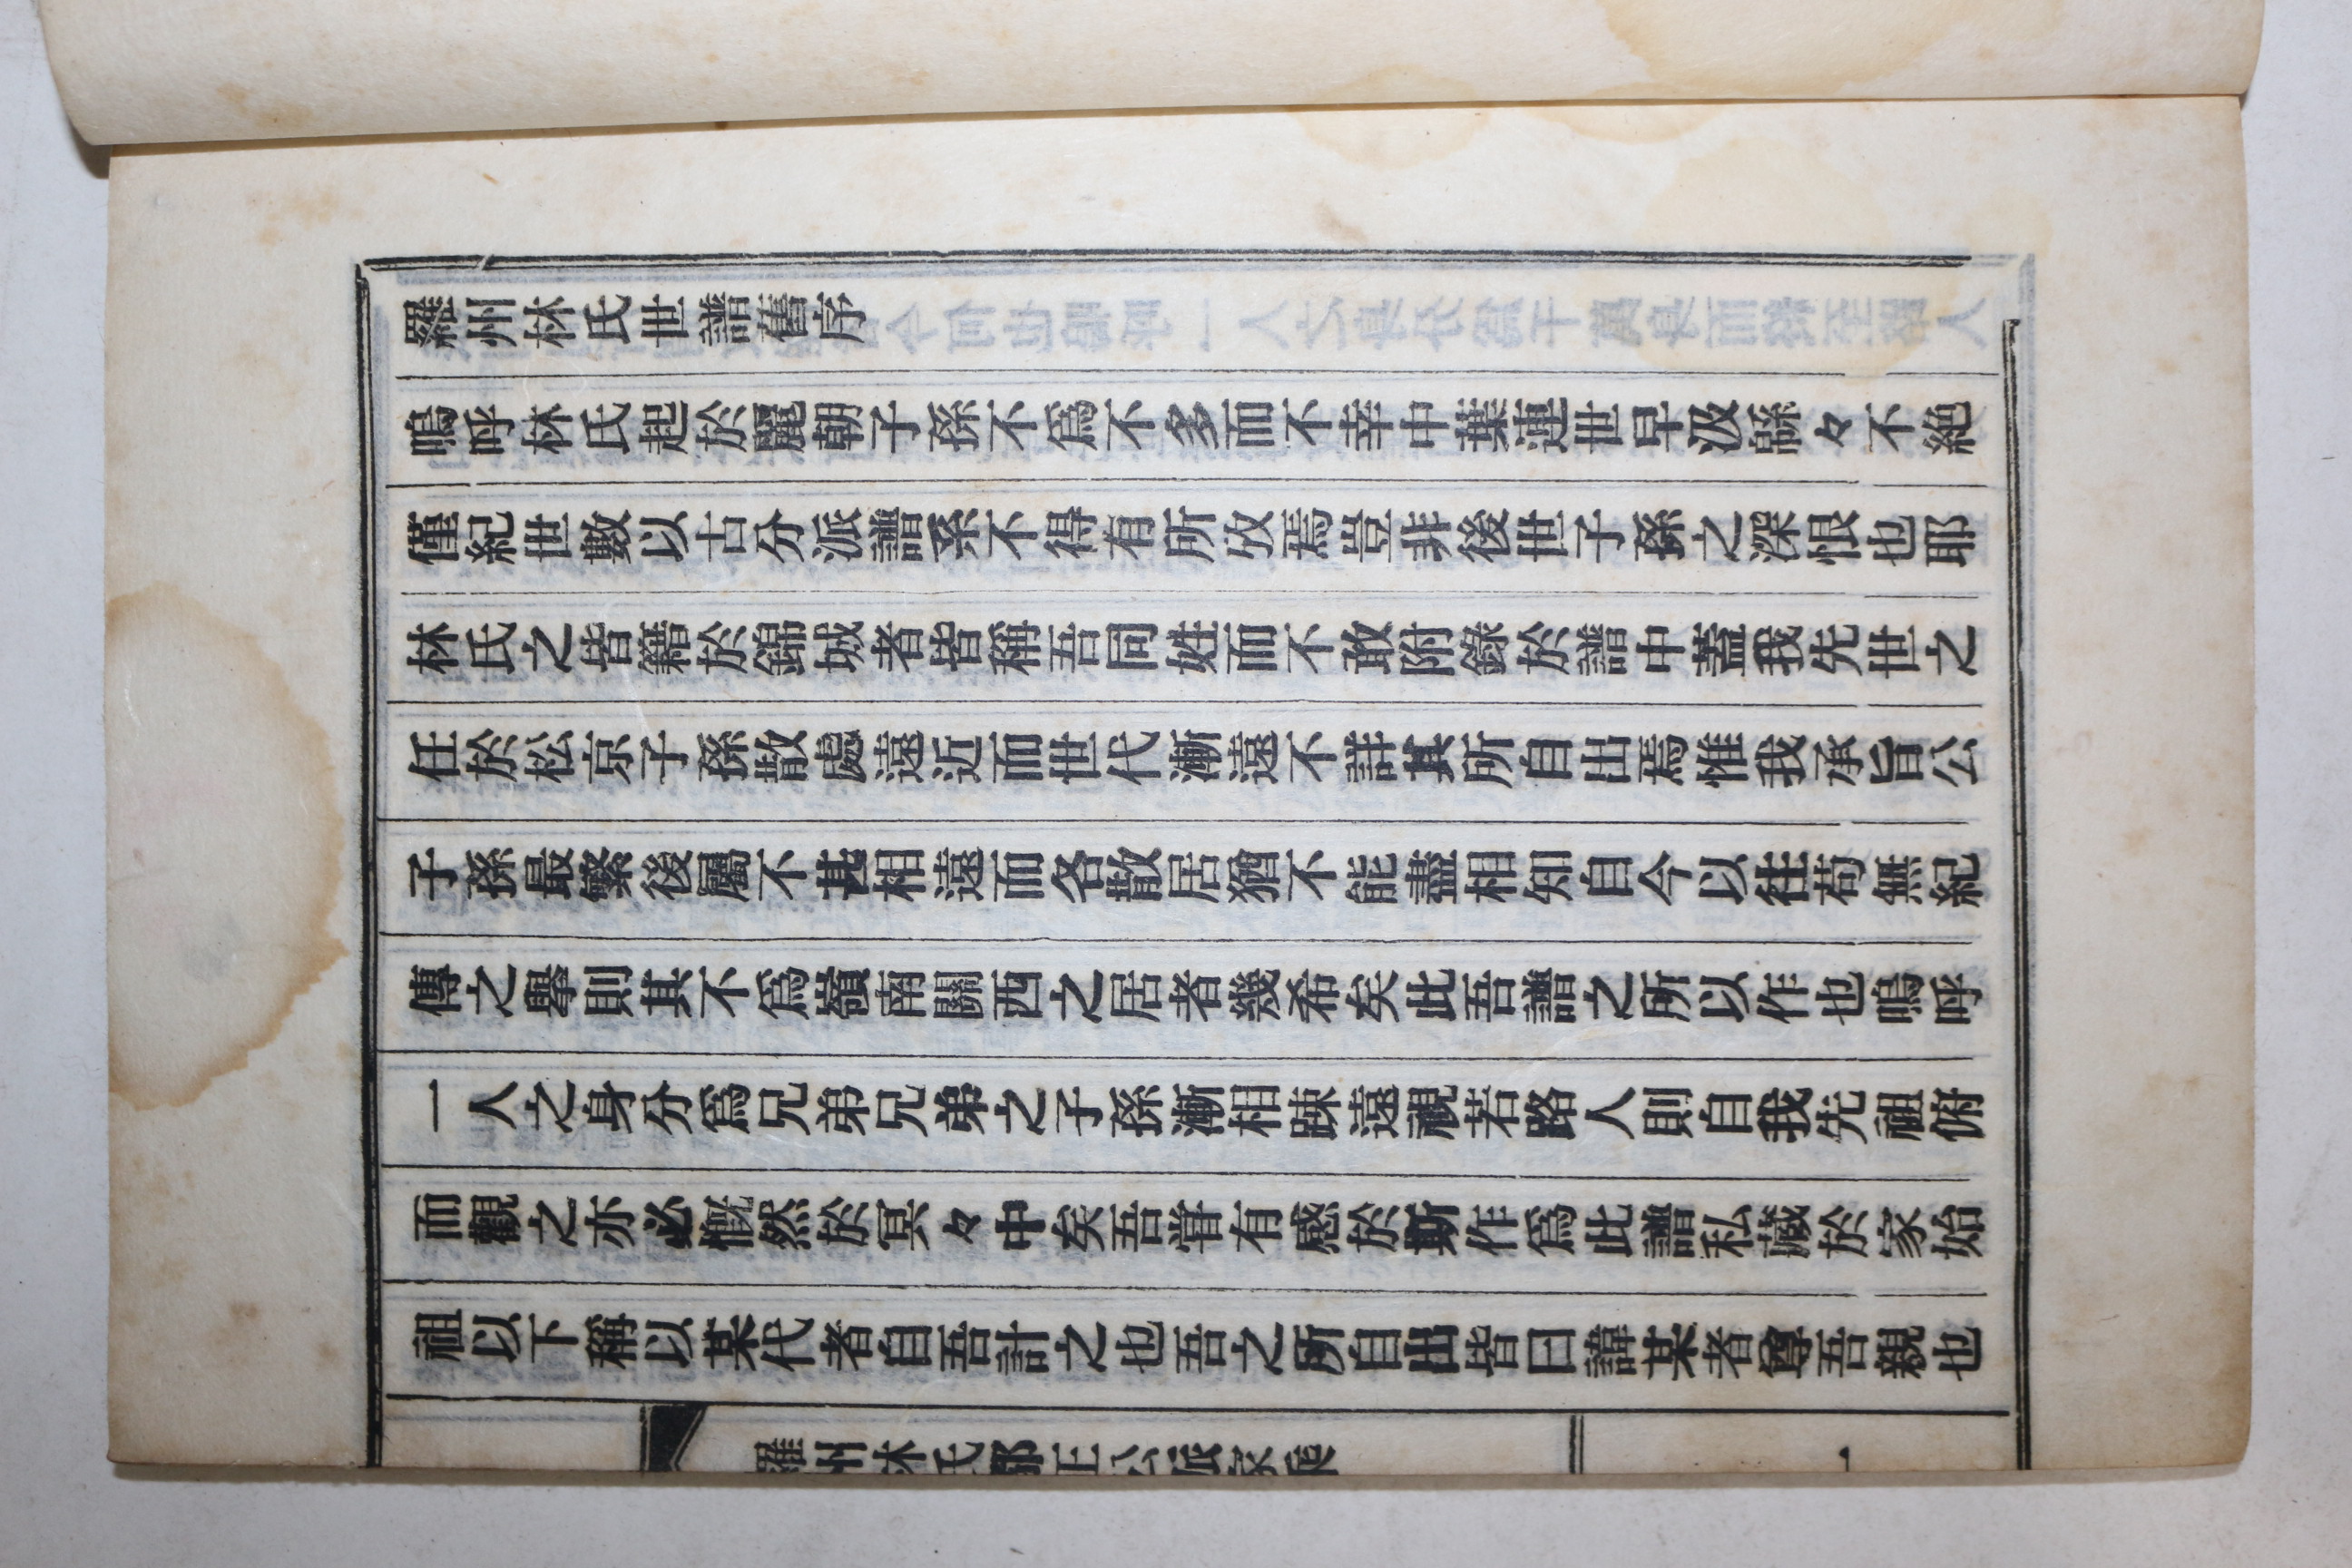 羅州林氏世譜舊序
嗚呼林氏起於麗朝子孫不爲不多而不幸中葉連世早沒緜々不絶
僅紀世數以古分派譜系不得有所攷焉豈非後世子孫之深恨也耶
林氏之皆籍於錦城者皆稱吾同姓而不敢附錄於譜中蓋我先世之
任於松京子孫散處遠近而世代漸遠不詳其所自出焉惟我承旨公
子孫最繁後屬不甚相遠而各散居猶不能盡相知自今以往苟無紀
傳之擧則其不爲嶺南關西之居者幾希矣此吾譜之所以作也嗚呼
一人之身分爲兄弟兄弟之子孫漸相踈遠視若路人則自我先祖俯
而觀之亦必慨然於冥々中矣吾甞有感於斯作爲此譜私藏於家始
祖以下稱以某代者自吾計之也吾之所自出皆曰諱某者尊吾親也
羅州林氏正公派家乘
一